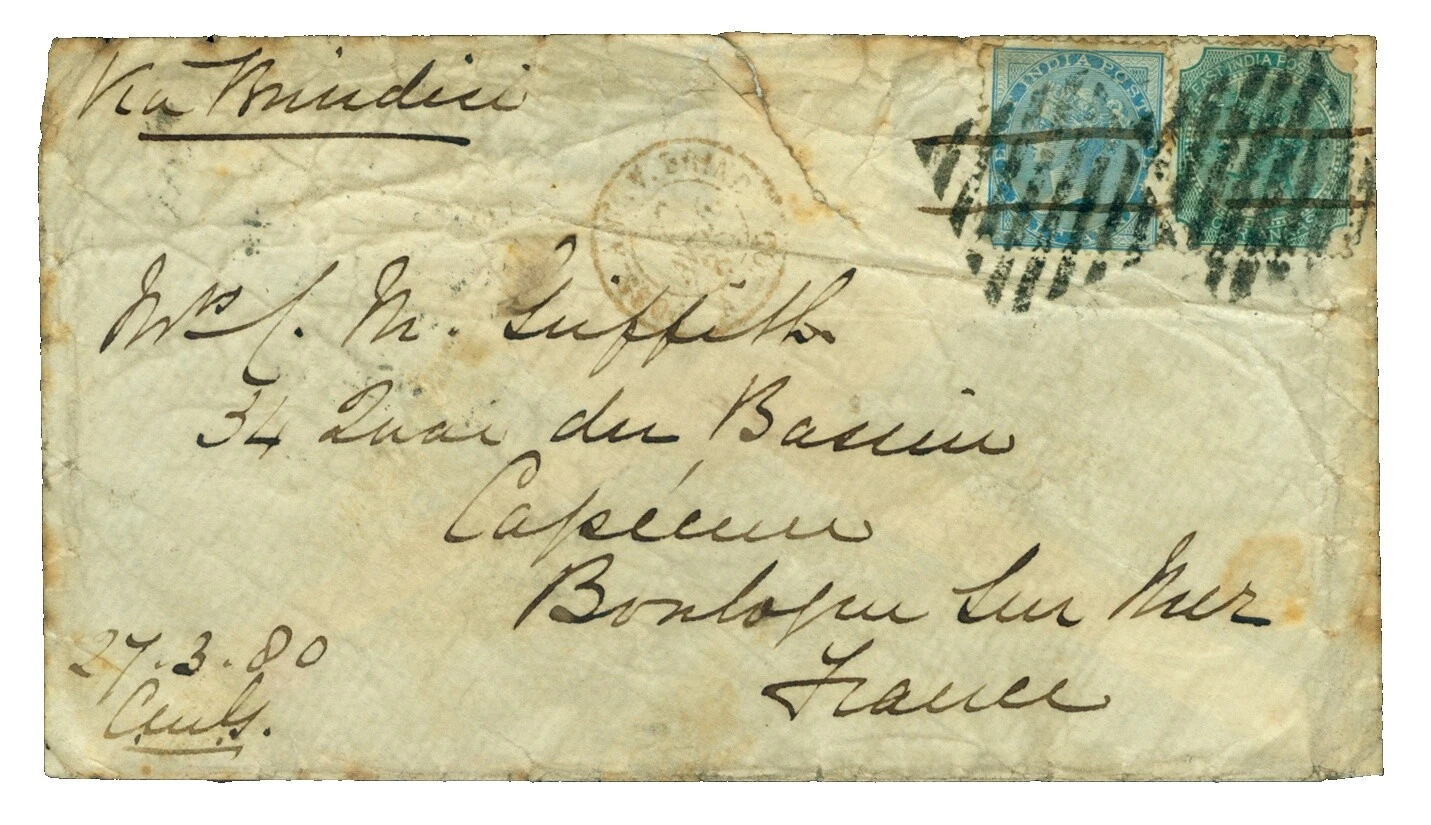 Via Brindisi
EAST INDIA POSTAGE
EAST INDIA POSTAGE
Mrs C. M. Griffith
34 Quai du Bassin
Capécure
Boulogne Sur Mer
France
27.3.80